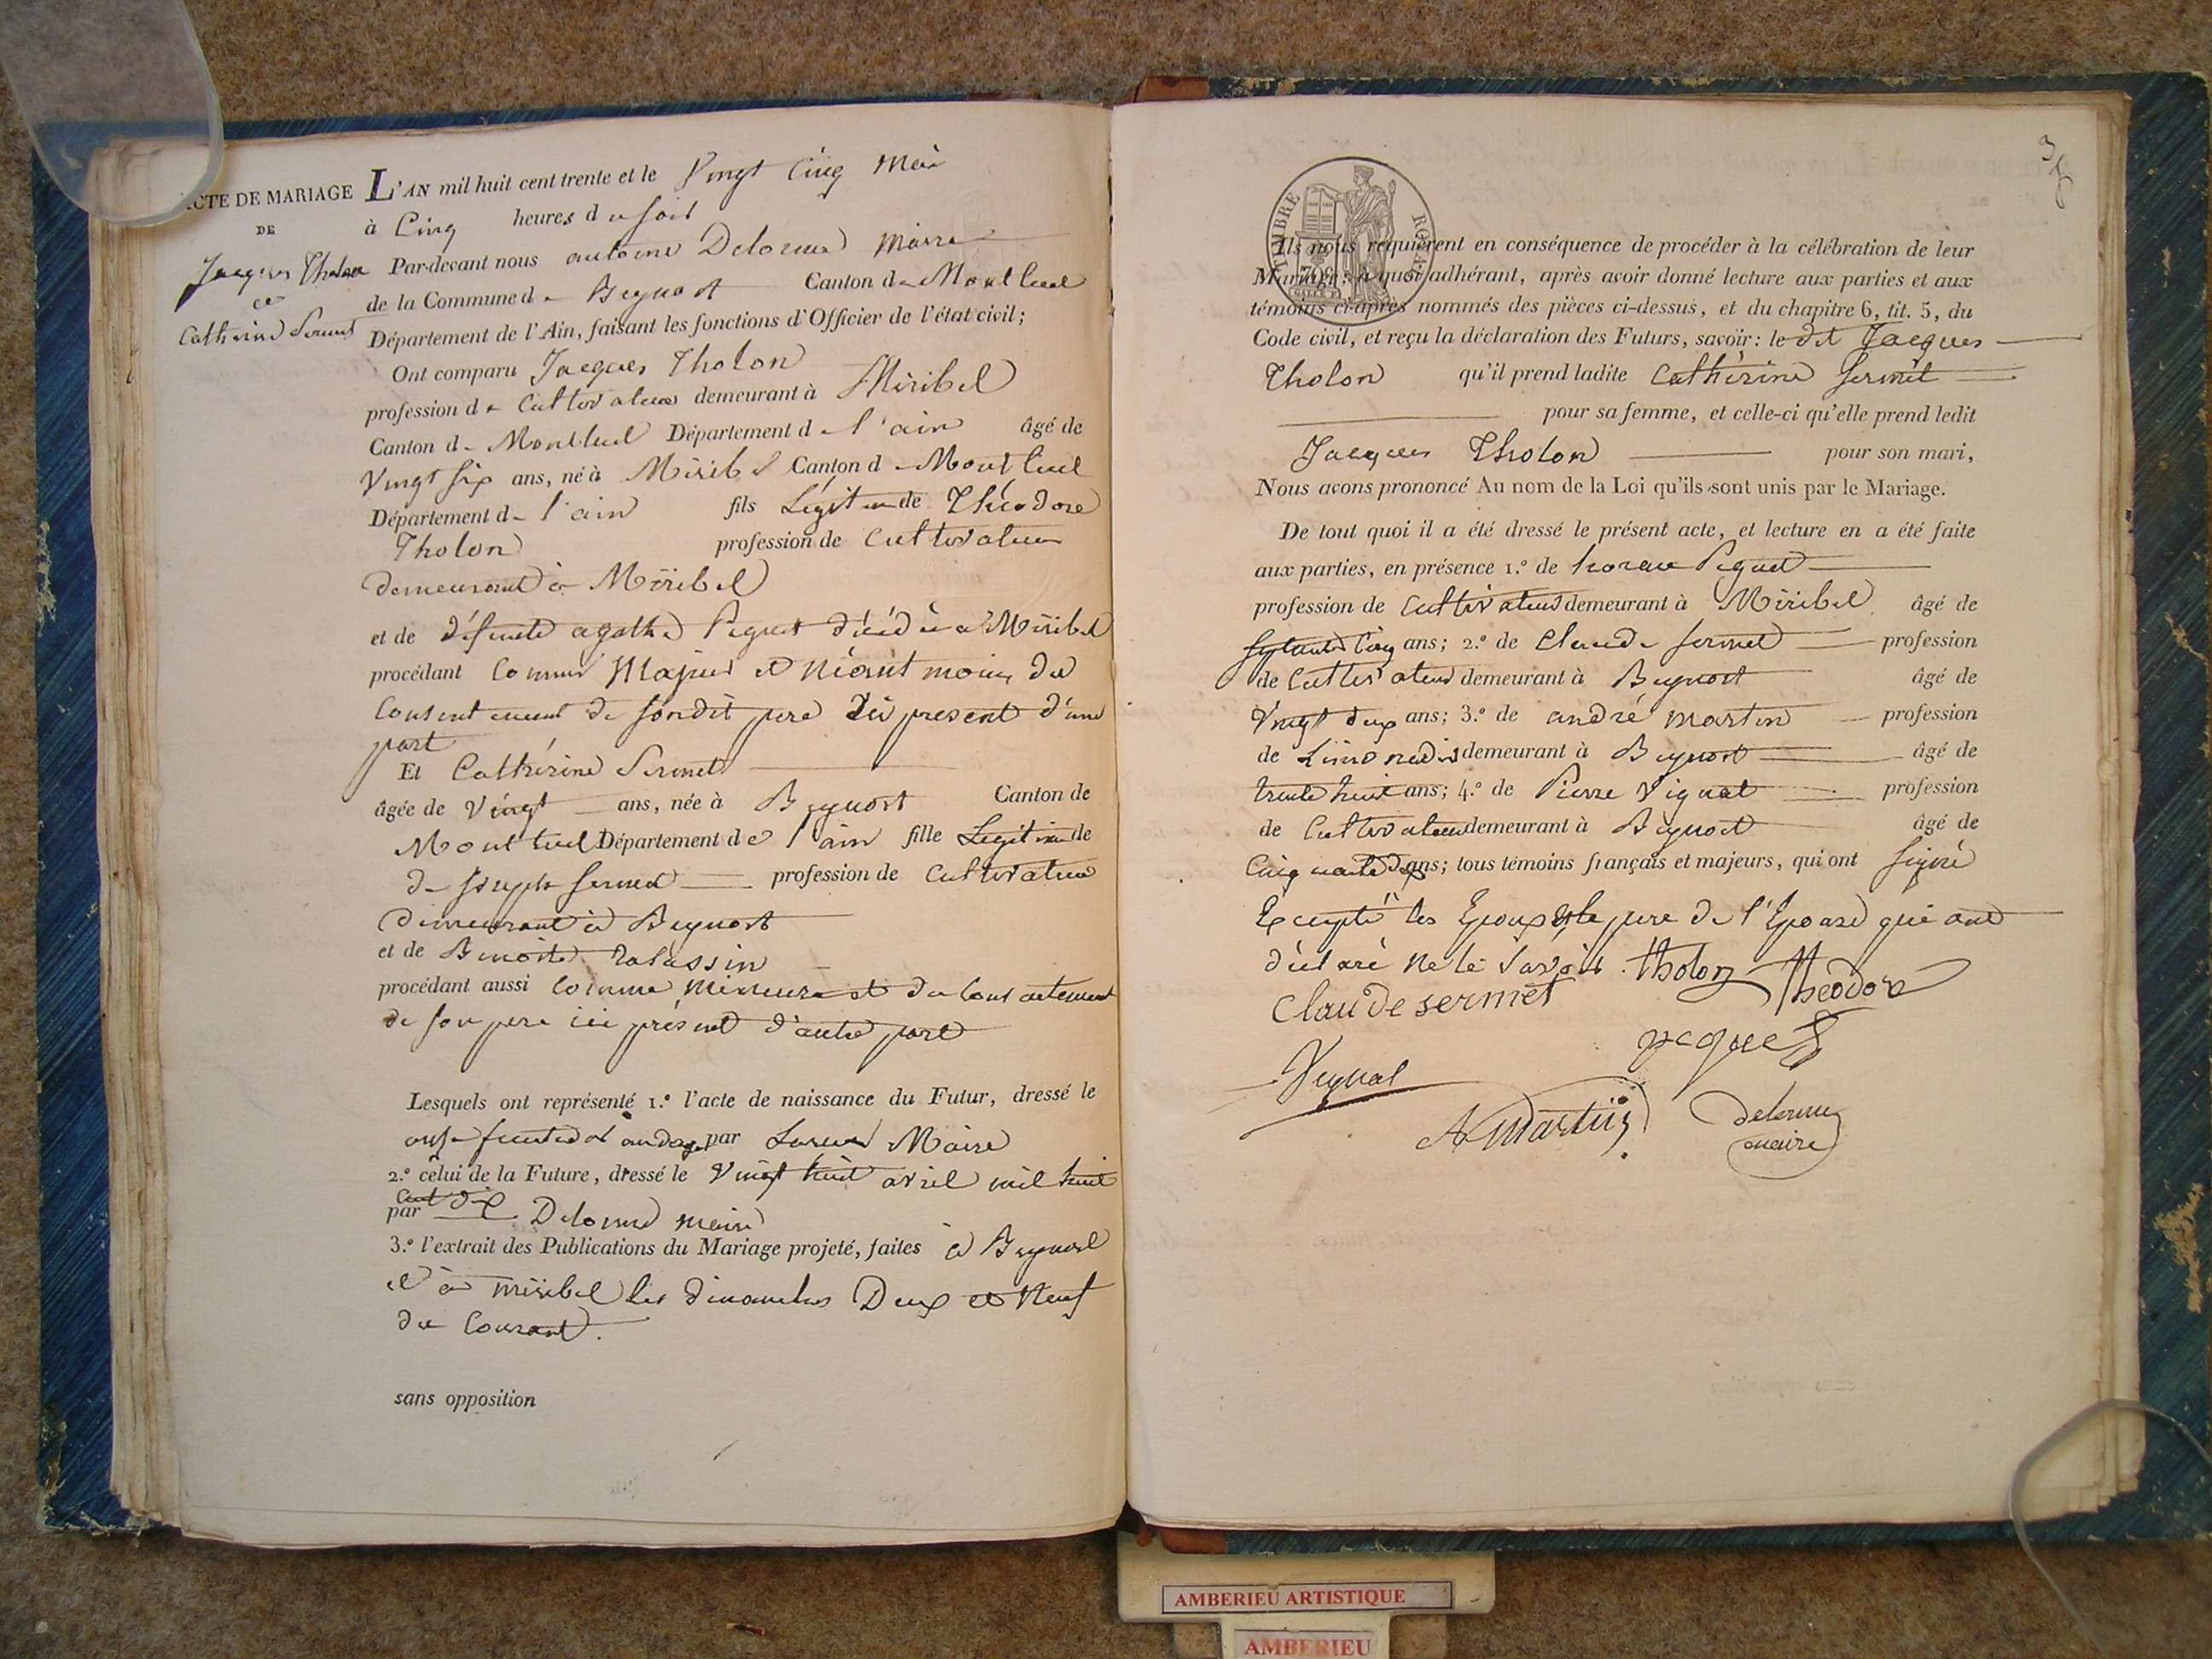 ACTE DE MARIAGE
DE
Jacques Tholon
et
Catherine Sermet
L'AN mil huit cent trente et le Vingt Cinq Mai
à Cinq heures du soir
Par-devant nous antoine Delorme Maire
de la Commune de Beynost Canton de Montluel
Département de l'Ain, faisant les fonctions d'Officier de l'état civil;
Ont comparu Jacques Tholon
profession de Cultivateur demeurant à Miribel
Canton de Montluel Département de l'ain âgé de
Vingt six ans, né à Miribel Canton de Montluel
Département de l'ain fils Légitime de Théodore
Tholon profession de Cultivateur
demeurant à Miribel
et de défunte agathe Péquet décédée à Miribel
procédant Comme Majeur et Néantmoins du
Consentement de sondit pere ici présent d'une
part
Et Cathérine Sermet
âgée de Vingt ans, née à Beynost Canton de
Montluel Département de l'ain fille Legitime de
de Joseph Sermet profession de Cultivateur
demeurant à Beynost
et de Benoite
procédant aussi Comme Mineure et du Consentement
de son pere ici présent d'autre part
Lesquels ont représenté 1.º l'acte de naissance du Futur, dressé le
par Maire
2.º celui de la Future, dressé le Vingt huit avril mil huit
cent dix
par Delorme maire
3.º l'extrait des Publications du Mariage projeté, faites à Beynost
et à Miribel les dimanches Deux et Neuf
du Courant.
sans opposition
TIMBRE ROYAL
Ils nous requièrent en conséquence de procéder à la célébration de leur
Mariage; à quoi adhérant, après avoir donné lecture aux parties et aux
témoins ci-après nommés des pièces ci-dessus, et du chapitre 6, tit. 5, du
Code civil, et reçu la déclaration des Futurs, savoir: le dit Jacques
Tholon qu'il prend ladite Cathérine Sermet
pour sa femme, et celle-ci qu'elle prend ledit
Jacques Tholon pour son mari,
Nous avons prononcé Au nom de la Loi qu'ils sont unis par le Mariage.
De tout quoi il a été dressé le présent acte, et lecture en a été faite
aux parties, en présence 1.º de Péquet
profession de Cultivateur demeurant à Miribel âgé de
Septante Cinq ans; 2.º de Claude Sermet profession
de Cultivateur demeurant à Beynost âgé de
Vingt deux ans; 3.º de andré Martin profession
de demeurant à Beynost âgé de
trente huit ans; 4.º de Pierre Vignal profession
de Cultivateur demeurant à Beynost âgé de
Cinquante deux ans; tous témoins français et majeurs, qui ont signé
Excepté les Epoux et le pere de l'Epouse qui ont
déclaré ne le savoir. tholon théodore
Claude sermet
pequet
Veynal
A Martin
delorme
maire
AMBERIEU ARTISTIQUE
AMBERIEU